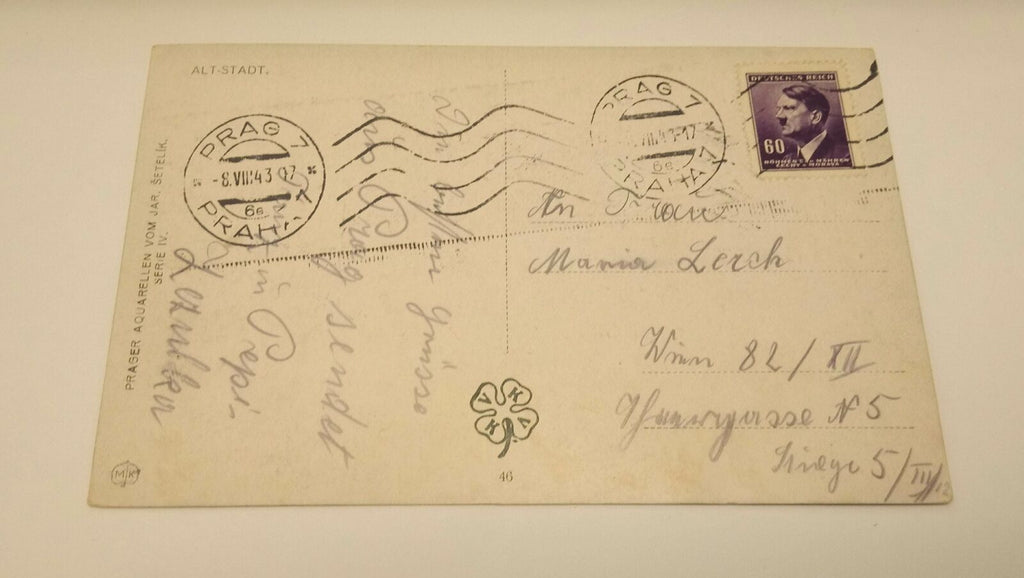 ALT-STADT.
PRAGER AQUARELLEN VOM JAR. ŠETELÍK.
SERIE IV.
PRAG 7
-8.VIII.43 07
6e
PRAHA 7
PRAG 7
VIII.43-17
6e
PRAHA 7
DEUTSCHES REICH
60
BÖHMEN U. MÄHREN
ČECHY A MORAVA
aus Prag sendet
An Frau
Maria Lerch
Wien 82 / XII
gasse № 5
Stiege 5/III/12
V K V K
46
MK